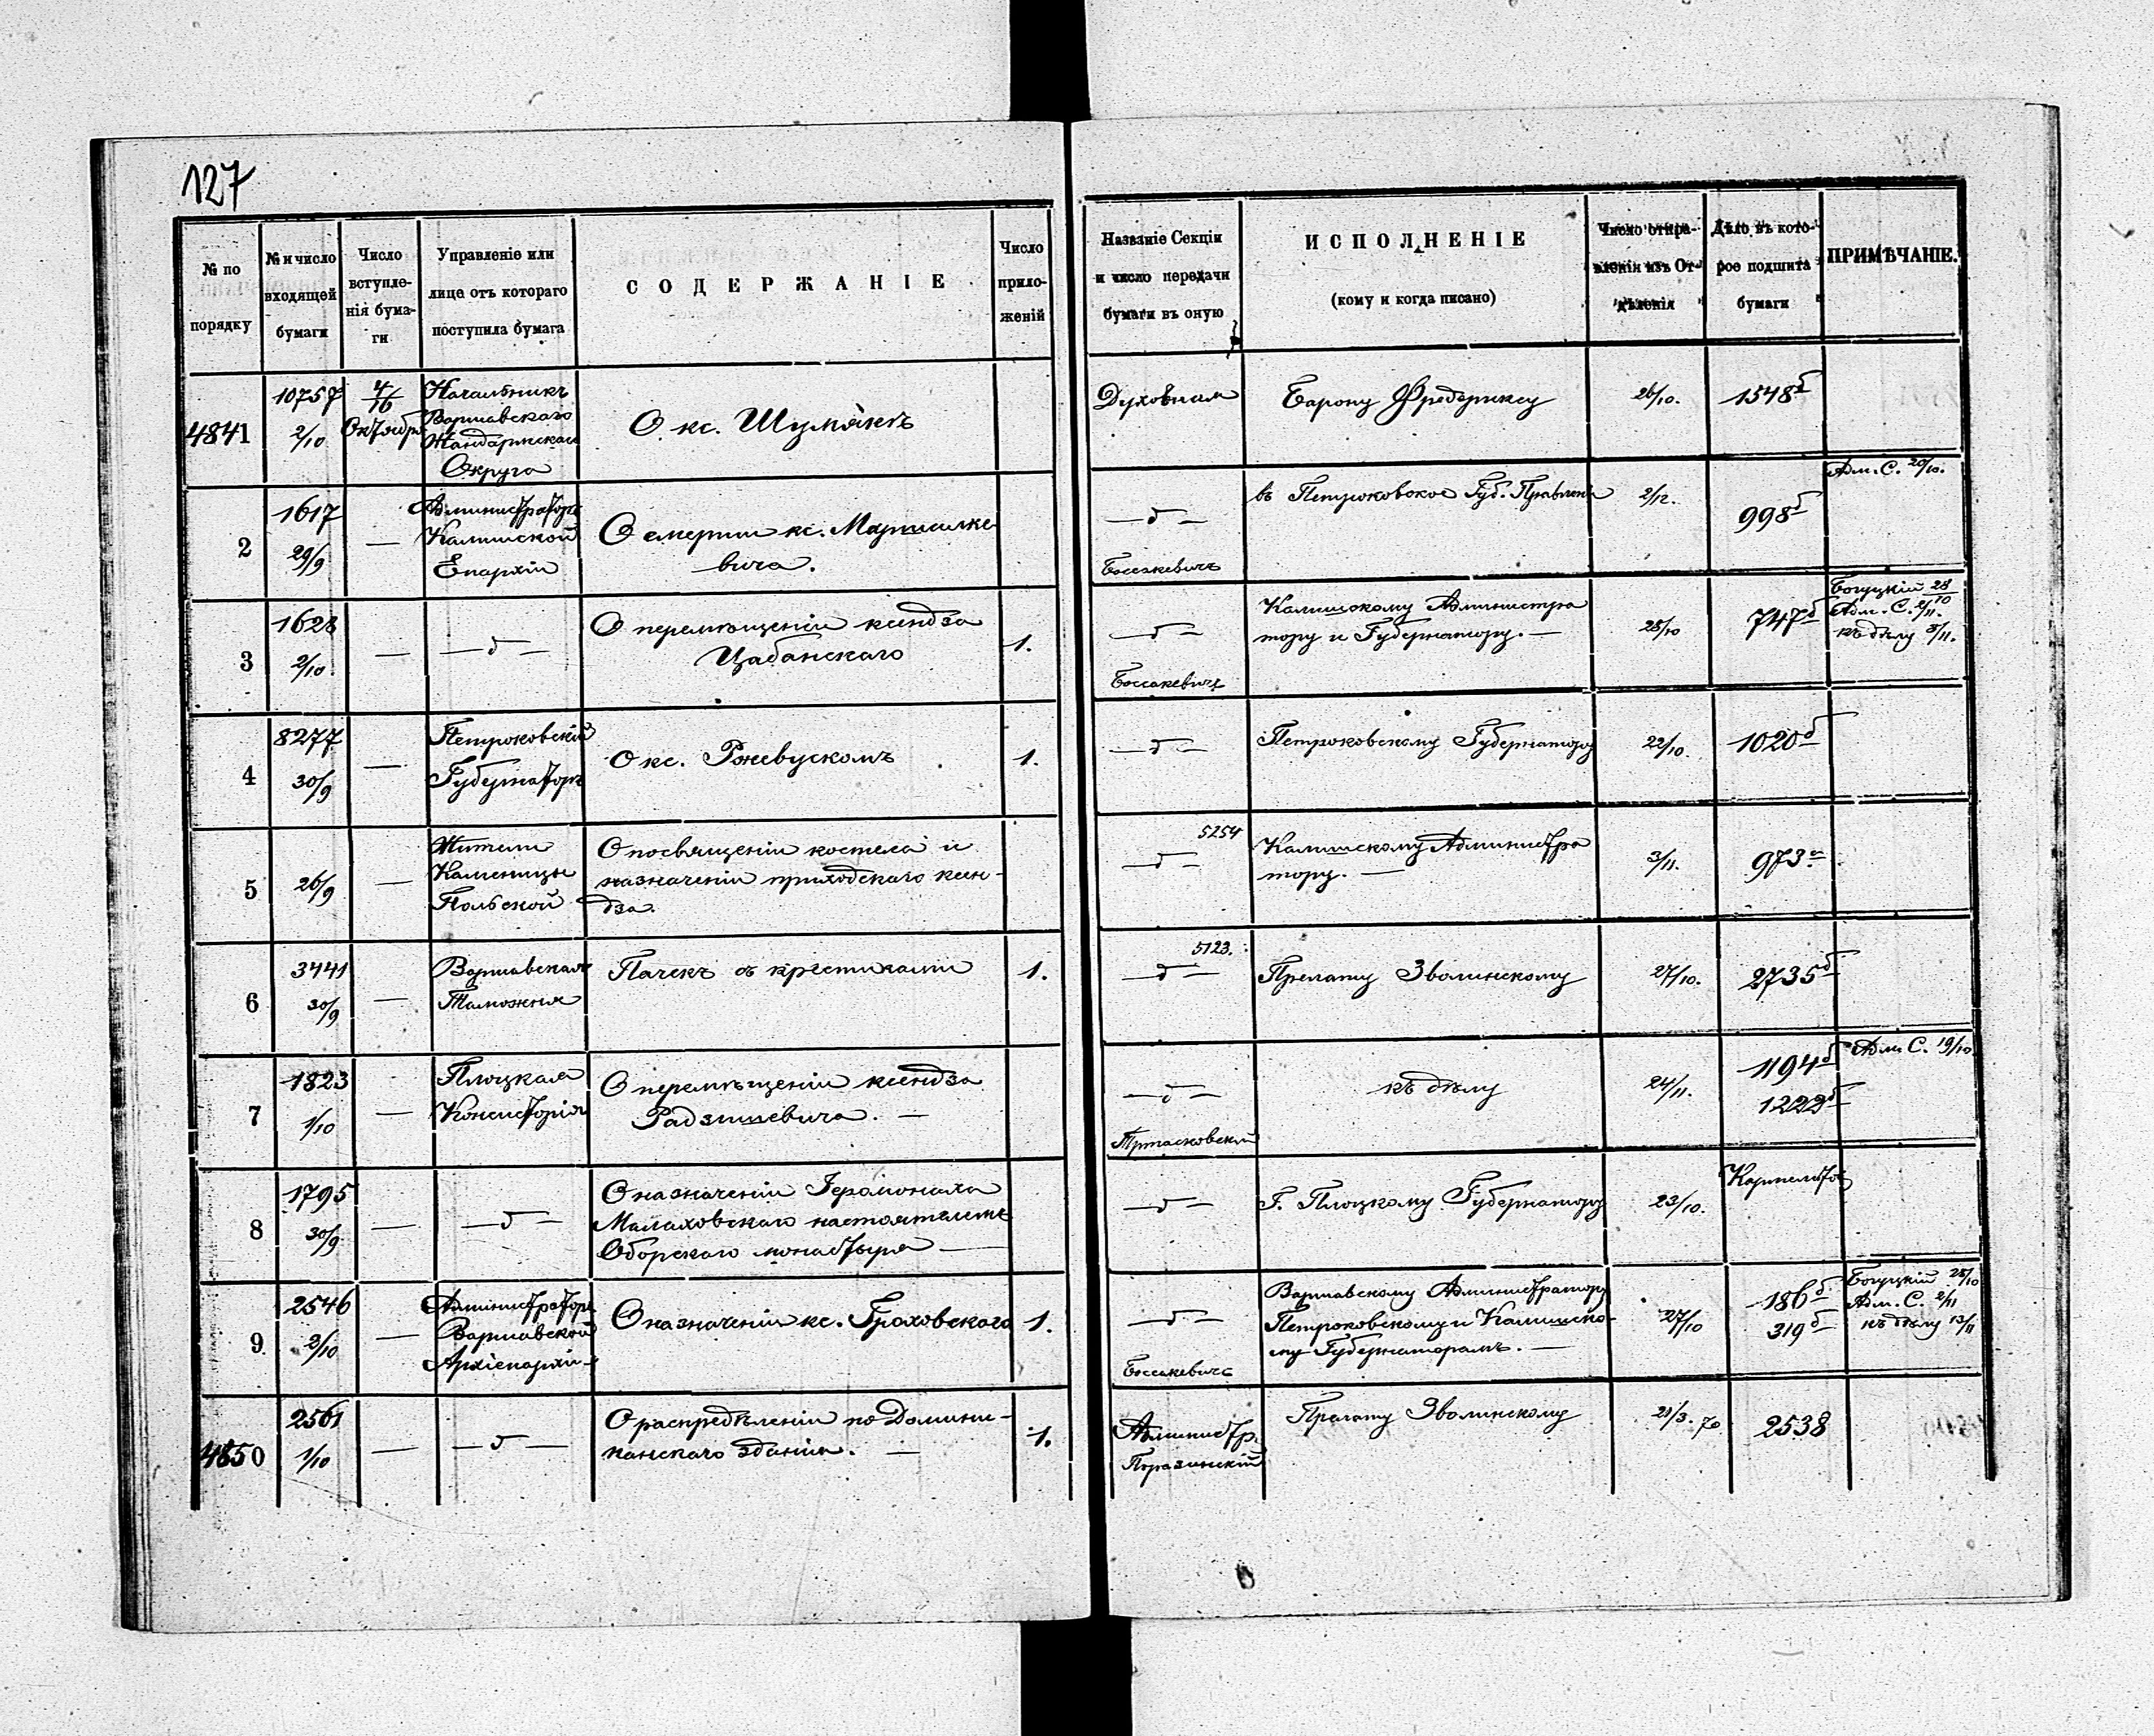 127
№ по порядку
№ и число входящей бумаги
Число вступле-нія бума-ги
Управленіе или лице отъ котораго поступила бумага
СОДЕРЖАНІЕ
Число прило-женій
Названіе Секціи и число передачи бумаги въ оную
ИСПОЛНЕНІЕ
(кому и когда писано)
Число отпра-вленія изъ От-дѣленія
Дѣло въ кото-рое подшита бумаги
ПРИМѢЧАНІЕ.
4841
10757
2/10
4/16
Октября
Начальникъ
Варшавскаго
Жандармскаго
Округа
О кс. Шумякѣ
Духовная
Барону Фредериксу
26/10.
1548 б
2
1617
29/9
—
Администраторъ
Калишской
Епархіи
О смерти кс. Мацкиаке
вича.
— д —
въ Петроковское Губ. Правленіе
2/12.
998 б
Адм. С. 20/10.
3
1628
2/10.
—
— д —
О перемѣщеніи ксендза
Цабанскаго
1.
— д —
Калишскому Администра
тору и Губернатору. —
28/10
747 б
Богуцкій 28/10
Адм. С. 2/11.
къ дѣлу 5/11.
4
8277
30/9
—
Петроковскій
Губернаторъ
О кс. Ржевускомъ
1.
— д —
Петроковскому Губернатору
22/10.
1020 б
5
26/9
—
Жители
Каменицы
Польской
О посвященіи костела и
назначеніи приходскаго ксен-
дза.
5254
— д —
Калишскому Администра
тору. —
3/11.
973 а
6
3441
30/9
—
Варшавская
Таможня
Пачекъ съ крестиками
1.
5123.
— д —
Прелату Зволинскому
27/10.
2735 б
7
1823
1/10
—
Плоцкая
Консисторія
О перемѣщеніи ксендза
Радзишевича. —
— д —
къ дѣлу
24/11.
1194 б
1222 б
Адм. С. 19/10
8
1795
30/9
—
— д —
О назначеніи Іеромонаха
Малаховскаго настоятелемъ
Оборскаго монастыря —
— д —
Г. Плоцкому Губернатору
23/10.
9
2546
2/10
—
Администраторъ
Варшавской
Архіепархіи
О назначеніи кс. Гроховскаго
1.
— д —
Варшавскому Администратору
Петроковскому и Калишско-
му Губернаторамъ. —
27/10
186 б
319 б
Богуцкій 28/10
Адм. С. 2/11
къ дѣлу 13/11
4850
2561
1/10
—
— д —
О распредѣленіи по Домини-
канскаго зданія. —
1.
Админстр.
Прелату Зволинскому
21/3. 70
2538